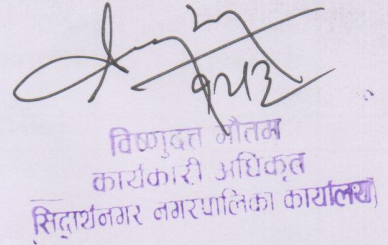 विष्णुदत्त गौतम
कार्यकारी अधिकृत
सिद्दार्थनगर नगरपालिका कार्यालय